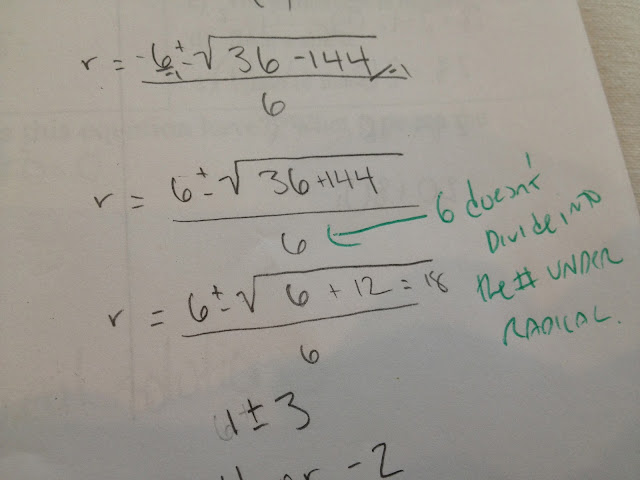 r = -6 ± √36 - 144
-1 -1
6
r = 6 ± √36 + 144
6
6 doesn't
Divide into
the # UNDER
RADICAL.
r = 6 ± √6 + 12 = 18
6
1 ± 3
or -2